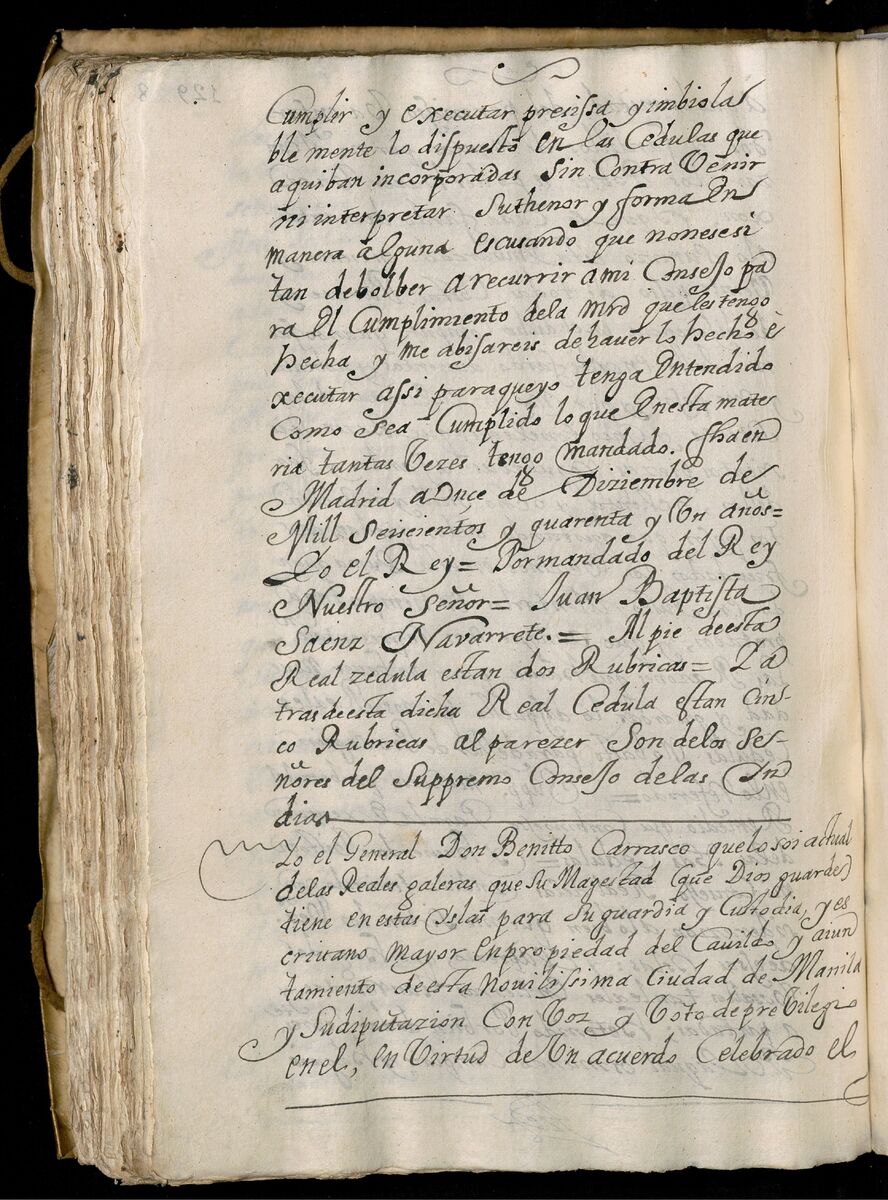 Cumplir y executar presissa yimbiola
ble mente lo dispuesto en las Cedulas que
aquiban incorporadas sin Contra Venir
ni interpretar suthenor y forma En
manera alguna escusando que nonesesi
tan debolber arecurrir ami Consejo pa
ra El Cumplimiento dela mrd que les tengo
hecha y me abisareis dehaverlo hecho è
xecutar assi paraqueyo tenga Entendido
Como sea Cumplido lo que Enesta mate
ria tantas Vezes tengo mandado. fhaen
Madrid aonçe de Diziembre de
Mill seiscientos y quarenta y Un años=
Yo el Rey= Pormandado del Rey
Nuestro señor= Juan Baptista
Saenz Navarrete.= Alpie deesta
Real zedula estan dos Rubricas= Ya
tras deesta dicha Real Cedula estan Cin-
co Rubricas alparezer Son delos Se-
ñores del Suppremo Consejo delas In
dias
Yo el General Don Benitto Carrasco quelosoi actual
delas Reales galeras que Su Magestad (que Dios guarde)
tiene enestas Yslas para Suguardia y Custodia, y es
crivano mayor Enpropiedad del Cavildo y aiun
tamiento deesta Novilissima Ciudad de Manila
y Sudiputazion Con Voz y Voto de preVilegio
enel, en Virtud de Un acuerdo Celebrado el